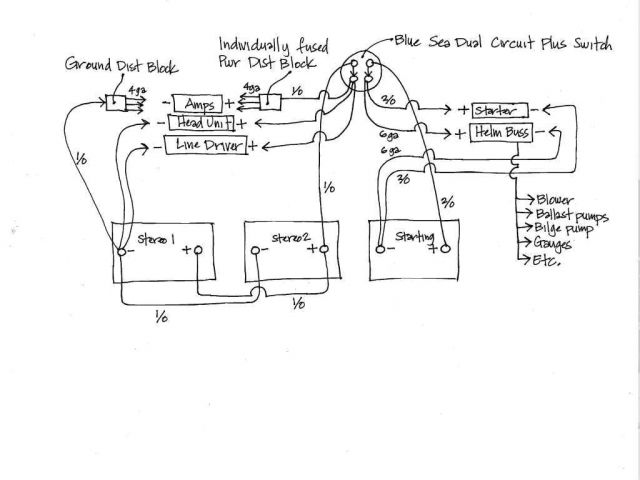 Individually fused
Pwr Dist Block
Blue Sea Dual Circuit Plus Switch
Ground Dist Block
4ga
4ga
- Amps +
1/0
2/0
+ Starter -
- Head Unit +
6ga
+ Helm Buss -
- Line Driver +
6ga
1/0
2/0
1/0
2/0
Blower
Ballast pumps
Bilge pump
Gauges
Etc.
Stereo 1
- +
Stereo 2
- +
Starting
- +
1/0
1/0